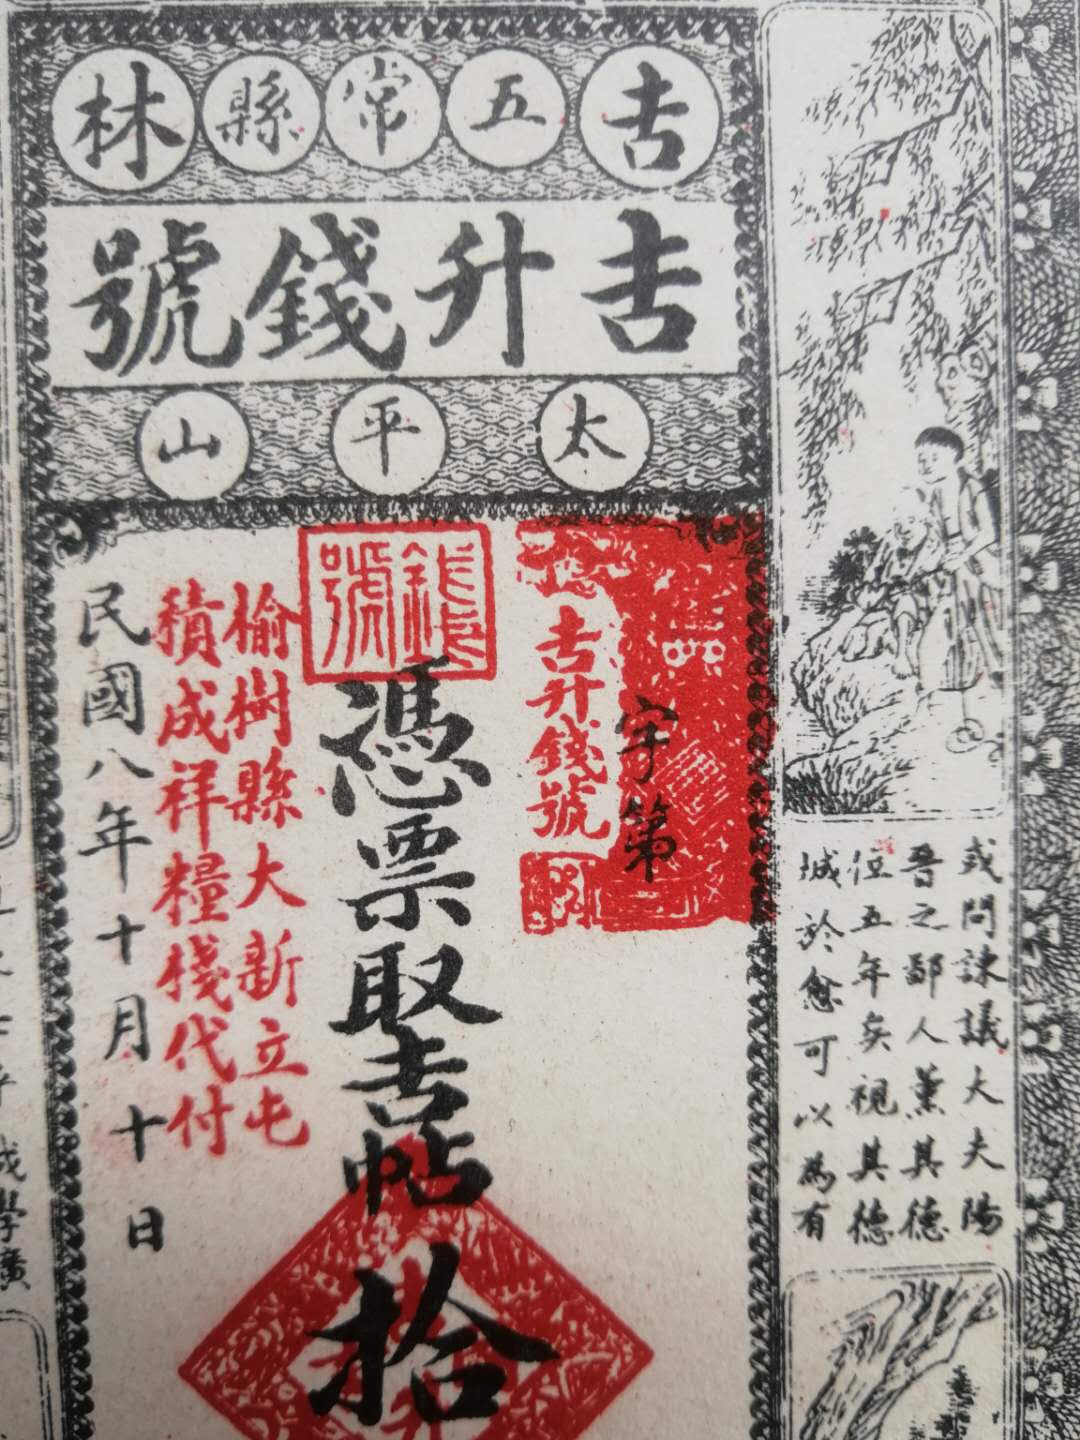 吉五常縣林
吉升錢號
太平山
字第
吉升錢號
號
憑票取吉帖拾
榆樹縣大新立屯
積成祥糧棧代付
民國八年十月十日
或問諫議大夫陽
晉之鄙人薰其德
位五年矣視其德
城於愈可以為有
成學廣